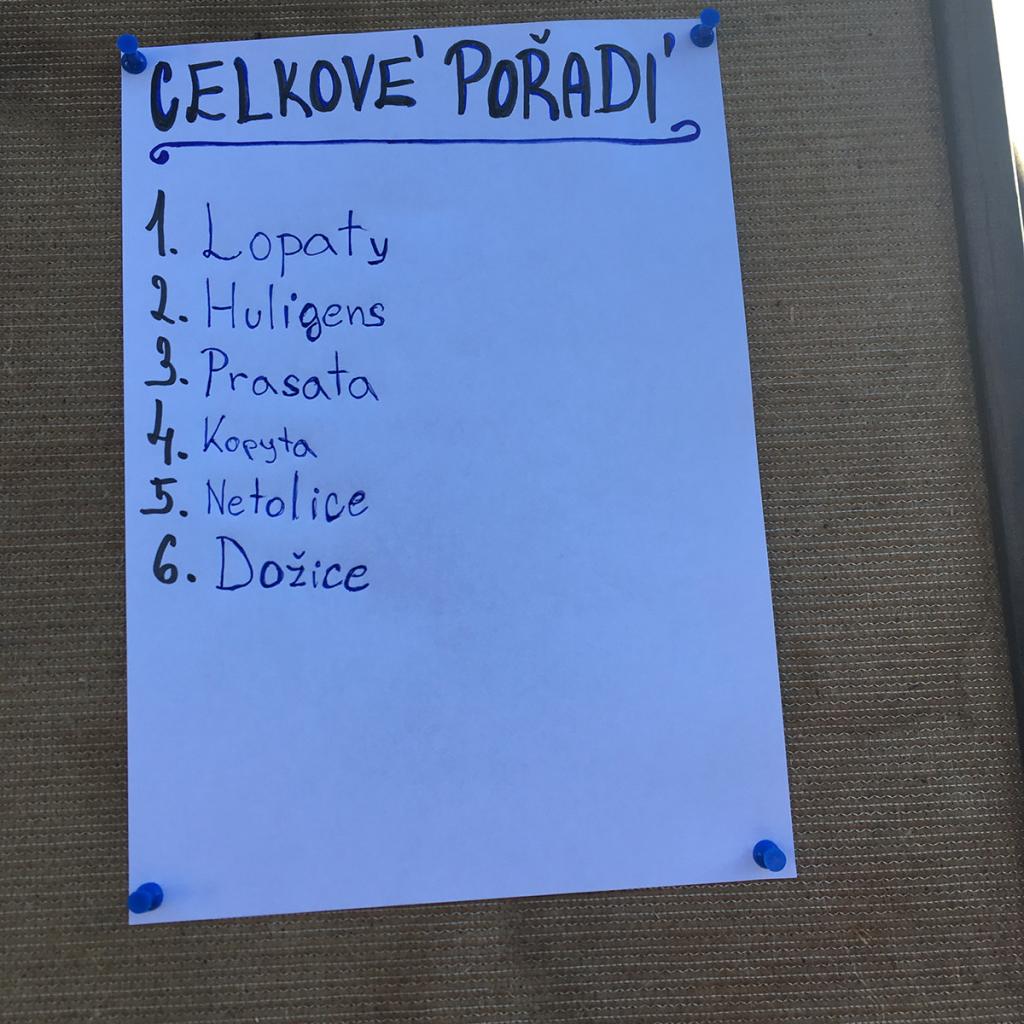 CELKOVÉ POŘADÍ
1. Lopaty
2. Huligens
3. Prasata
4. Kopyta
5. Netolice
6. Dožice